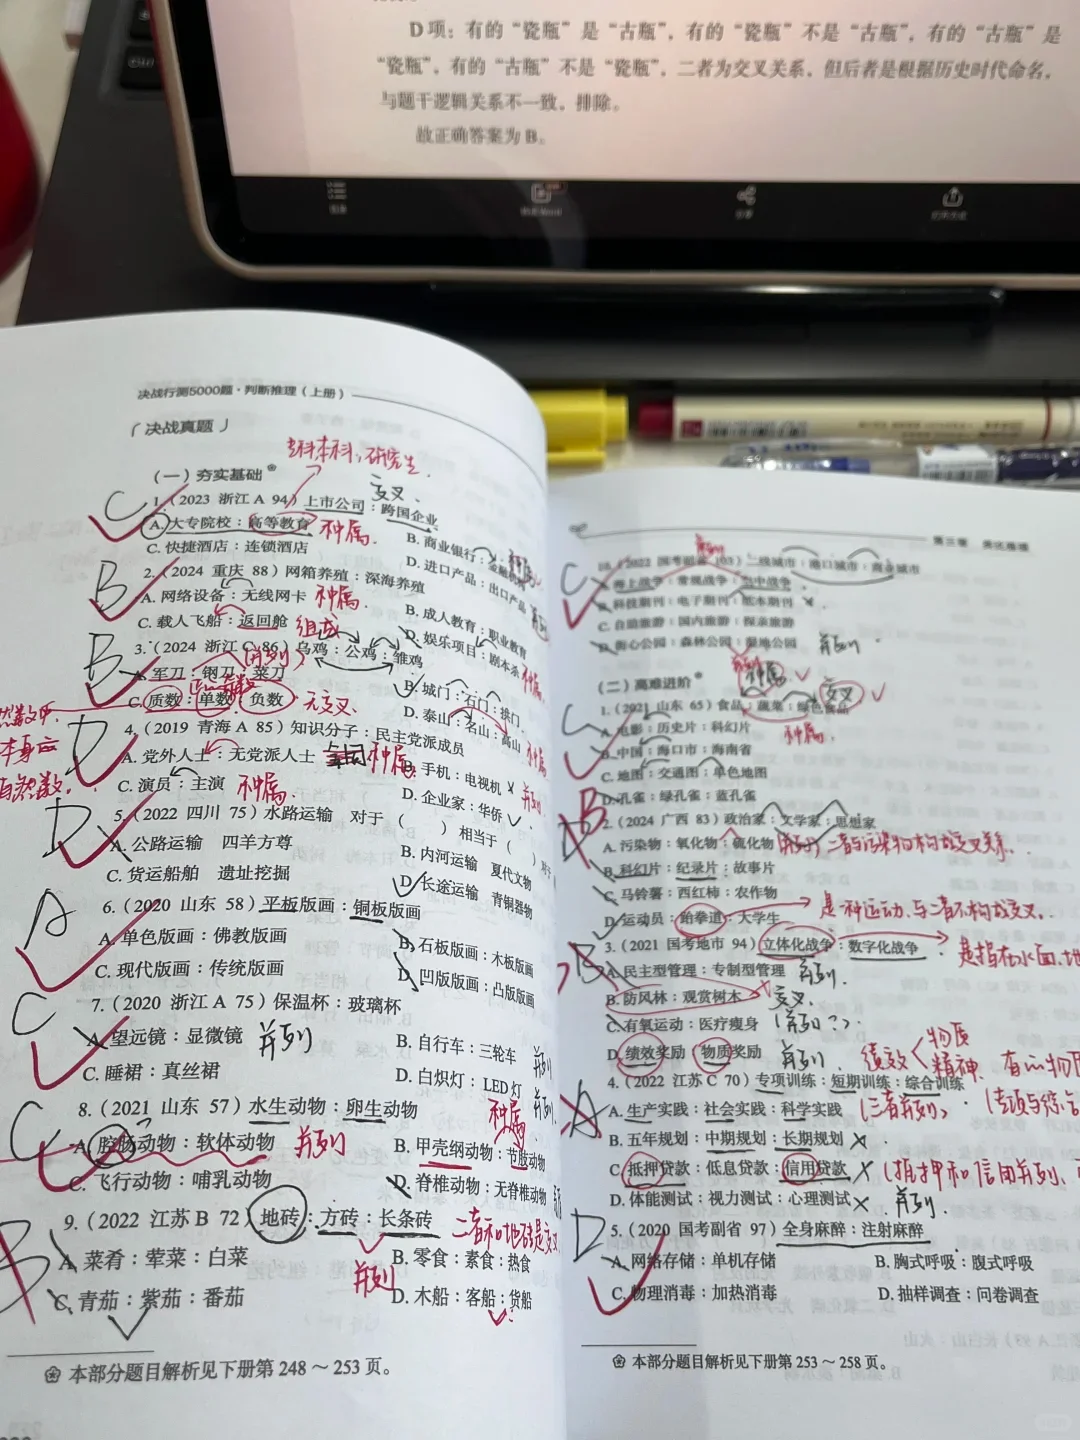 D项：有的“瓷瓶”是“古瓶”，有的“瓷瓶”不是“古瓶”，有的“古瓶”是
“瓷瓶”，有的“古瓶”不是“瓷瓶”，二者为交叉关系，但后者是根据历史时代命名，
与题干逻辑关系不一致，排除。
故正确答案为 B。
决战行测5000题·判断推理（上册）
决战真题
专科本科，研究生.
（一）夯实基础
交叉.
C
1.（2023 浙江 A 94）上市公司：跨国企业
A.大专院校：高等教育 种属.
B. 商业银行：金融机构
C. 快捷酒店：连锁酒店
D. 进口产品：出口产品
B
2.（2024 重庆 88）网箱养殖：深海养殖
A. 网络设备：无线网卡 种属.
B. 成人教育：职业教育
C. 载人飞船：返回舱 组成
D. 娱乐项目：剧本杀 种属.
B
3.（2024 浙江 C 86）乌鸡：公鸡：雏鸡
A. 军刀：钢刀：菜刀 (并列)
B. 城门：石门：拱门
C. 质数：单数：负数 无交叉.
D. 泰山：名山：高山
D
4.（2019 青海 A 85）知识分子：民主党派成员
A. 党外人士：无党派人士 种属.
B. 手机：电视机 × 并列
C. 演员：主演 种属.
D. 企业家：华侨
D
5.（2022 四川 75）水路运输 对于（ ）相当于（ ）对于
A. 公路运输 四羊方尊
B. 内河运输 夏代文物
C. 货运船舶 遗址挖掘
D. 长途运输 青铜器物
A
6.（2020 山东 58）平板版画：铜板版画
A. 单色版画：佛教版画
B. 石板版画：木板版画
C. 现代版画：传统版画
D. 凹版版画：凸版版画
C
7.（2020 浙江 A 75）保温杯：玻璃杯
A. 望远镜：显微镜 并列
B. 自行车：三轮车 并列
C. 睡裙：真丝裙
D. 白炽灯：LED 灯 并列
C
8.（2021 山东 57）水生动物：卵生动物
种属
A. 腔肠动物：软体动物 并列
B. 甲壳纲动物：节肢动物
C. 飞行动物：哺乳动物
D. 脊椎动物：无脊椎动物
B
9.（2022 江苏 B 72）地砖：方砖：长条砖 二者和地砖是交叉
A. 菜肴：荤菜：白菜
B. 零食：素食：热食
并列
C. 青茄：紫茄：番茄
D. 木船：客船：货船
本部分题目解析见下册第 248～253 页。
第三章 类比推理
并列
C
10.（2022 国考副省 103）二线城市：港口城市：商会城市
A. 海上战争：常规战争：空中战争
B. 科技期刊：电子期刊：纸本期刊 ×
C. 自助旅游：国内旅游：探亲旅游
D. 街心公园：森林公园：湿地公园 并列
（二）高难进阶
种属. 交叉
C
1.（2021 山东 65）食品：蔬菜：绿色食品
A. 电影：历史片：科幻片 种属.
B. 中国：海口市：海南省
C. 地图：交通图：单色地图
D. 孔雀：绿孔雀：蓝孔雀
B
2.（2024 广西 83）政治家：文学家：思想家
A. 污染物：氧化物：硫化物 二者与污染物构成交叉关系.
B. 科幻片：纪录片：故事片
C. 马铃薯：西红柿：农作物
D. 运动员：跆拳道：大学生 是一种运动,与二者不构成交叉.
B
3.（2021 国考地市 94）立体化战争：数字化战争 是指在水面,地
A. 民主型管理：专制型管理 并列.
B. 防风林：观赏树木 交叉.
C. 有氧运动：医疗瘦身 (并列?).
D. 绩效奖励：物质奖励 并列. 绩效 物质 精神.
A
4.（2022 江苏 C 70）专项训练：短期训练：综合训练
A. 生产实践：社会实践：科学实践 (三者并列).
B. 五年规划：中期规划：长期规划 ×
C. 抵押贷款：低息贷款：信用贷款 × (抵押和信用并列,
D. 体能测试：视力测试：心理测试 × 并列.
D
5.（2020 国考副省 97）全身麻醉：注射麻醉
A. 网络存储：单机存储
B. 胸式呼吸：腹式呼吸
C. 物理消毒：加热消毒
D. 抽样调查：问卷调查
本部分题目解析见下册第 253～258 页。